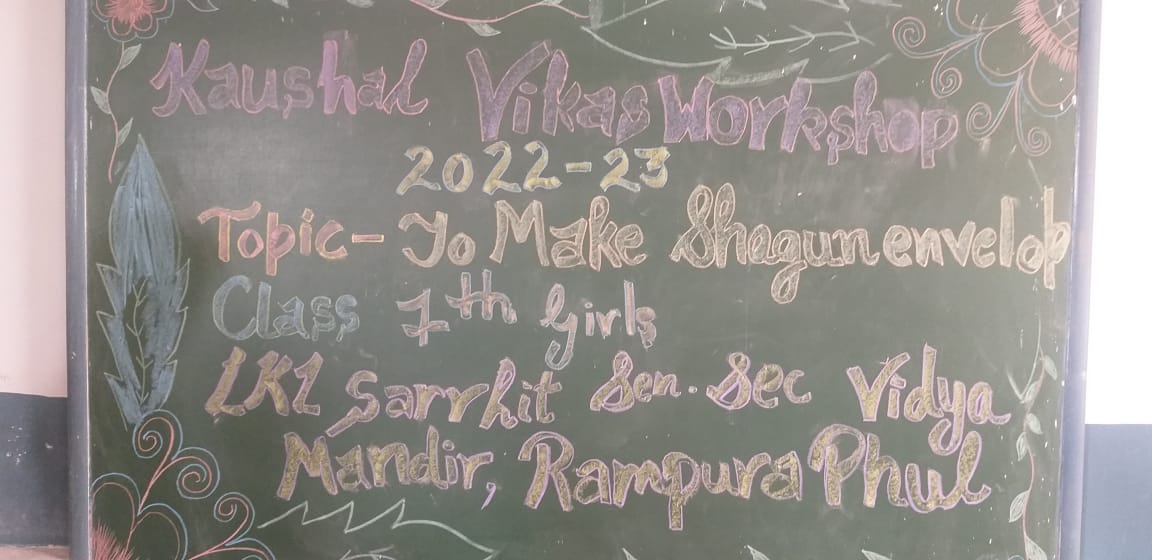 Kaushal Vikas Workshop
2022-23
Topic- To Make Shagun envelop
Class 7th Girls
LKL Sarvhit Sen. Sec Vidya
Mandir, Rampura Phul